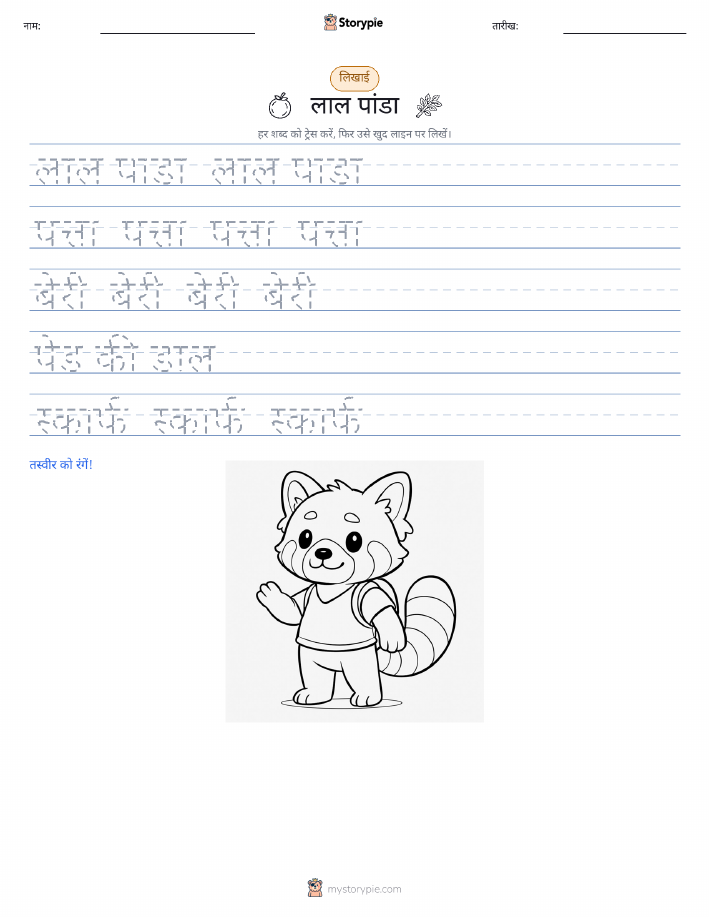 नाम:
Storypie
तारीख:
लिखाई
लाल पांडा
हर शब्द को ट्रेस करें, फिर उसे खुद लाइन पर लिखें।
लाल पाडा लाल पाडा
पत्ता पत्ता पत्ता पत्ता
बेरी बेरी बेरी बेरी
पेड की डाल
स्कार्फ स्कार्फ स्कार्फ
तस्वीर को रंगें!
mystorypie.com